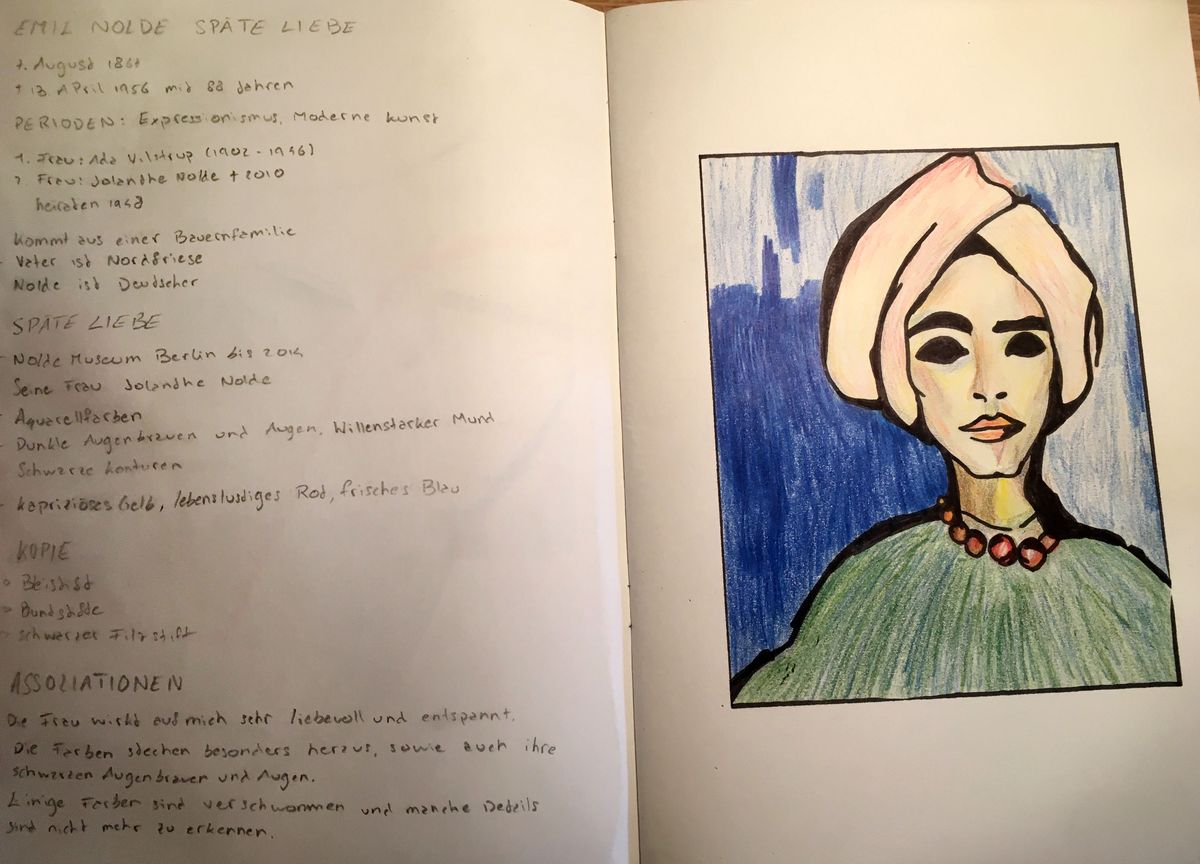 EMIL NOLDE SPÄTE LIEBE
7. August 1867
† 13 April 1956 mit 88 Jahren
PERIODEN: Expressionismus, Moderne kunst
1. Frau: Ada Vilstrup (1902 - 1946)
2. Frau: Jolandhe Nolde † 2010
heiraten 1948
kommt aus einer Bauernfamilie
- Vater ist Nordfriese
Nolde ist Deutscher
SPÄTE LIEBE
- Nolde Museum Berlin bis 2014
Seine Frau Jolandhe Nolde
- Aquarellfarben
- Dunkle Augenbrauen und Augen, Willenstarker Mund
Schwarze konturen
- kapriziöses Gelb, lebenslustiges Rot, frisches Blau
KOPIE
○ Bleistift
○ Buntstifte
○ schwarzer Filzstift
ASSOZIATIONEN
Die Frau wirkt auf mich sehr liebevoll und entspannt.
Die Farben stechen besonders heraus, sowie auch ihre
schwarzen Augenbrauen und Augen.
Einige Farben sind verschwommen und manche Details
sind nicht mehr zu erkennen.